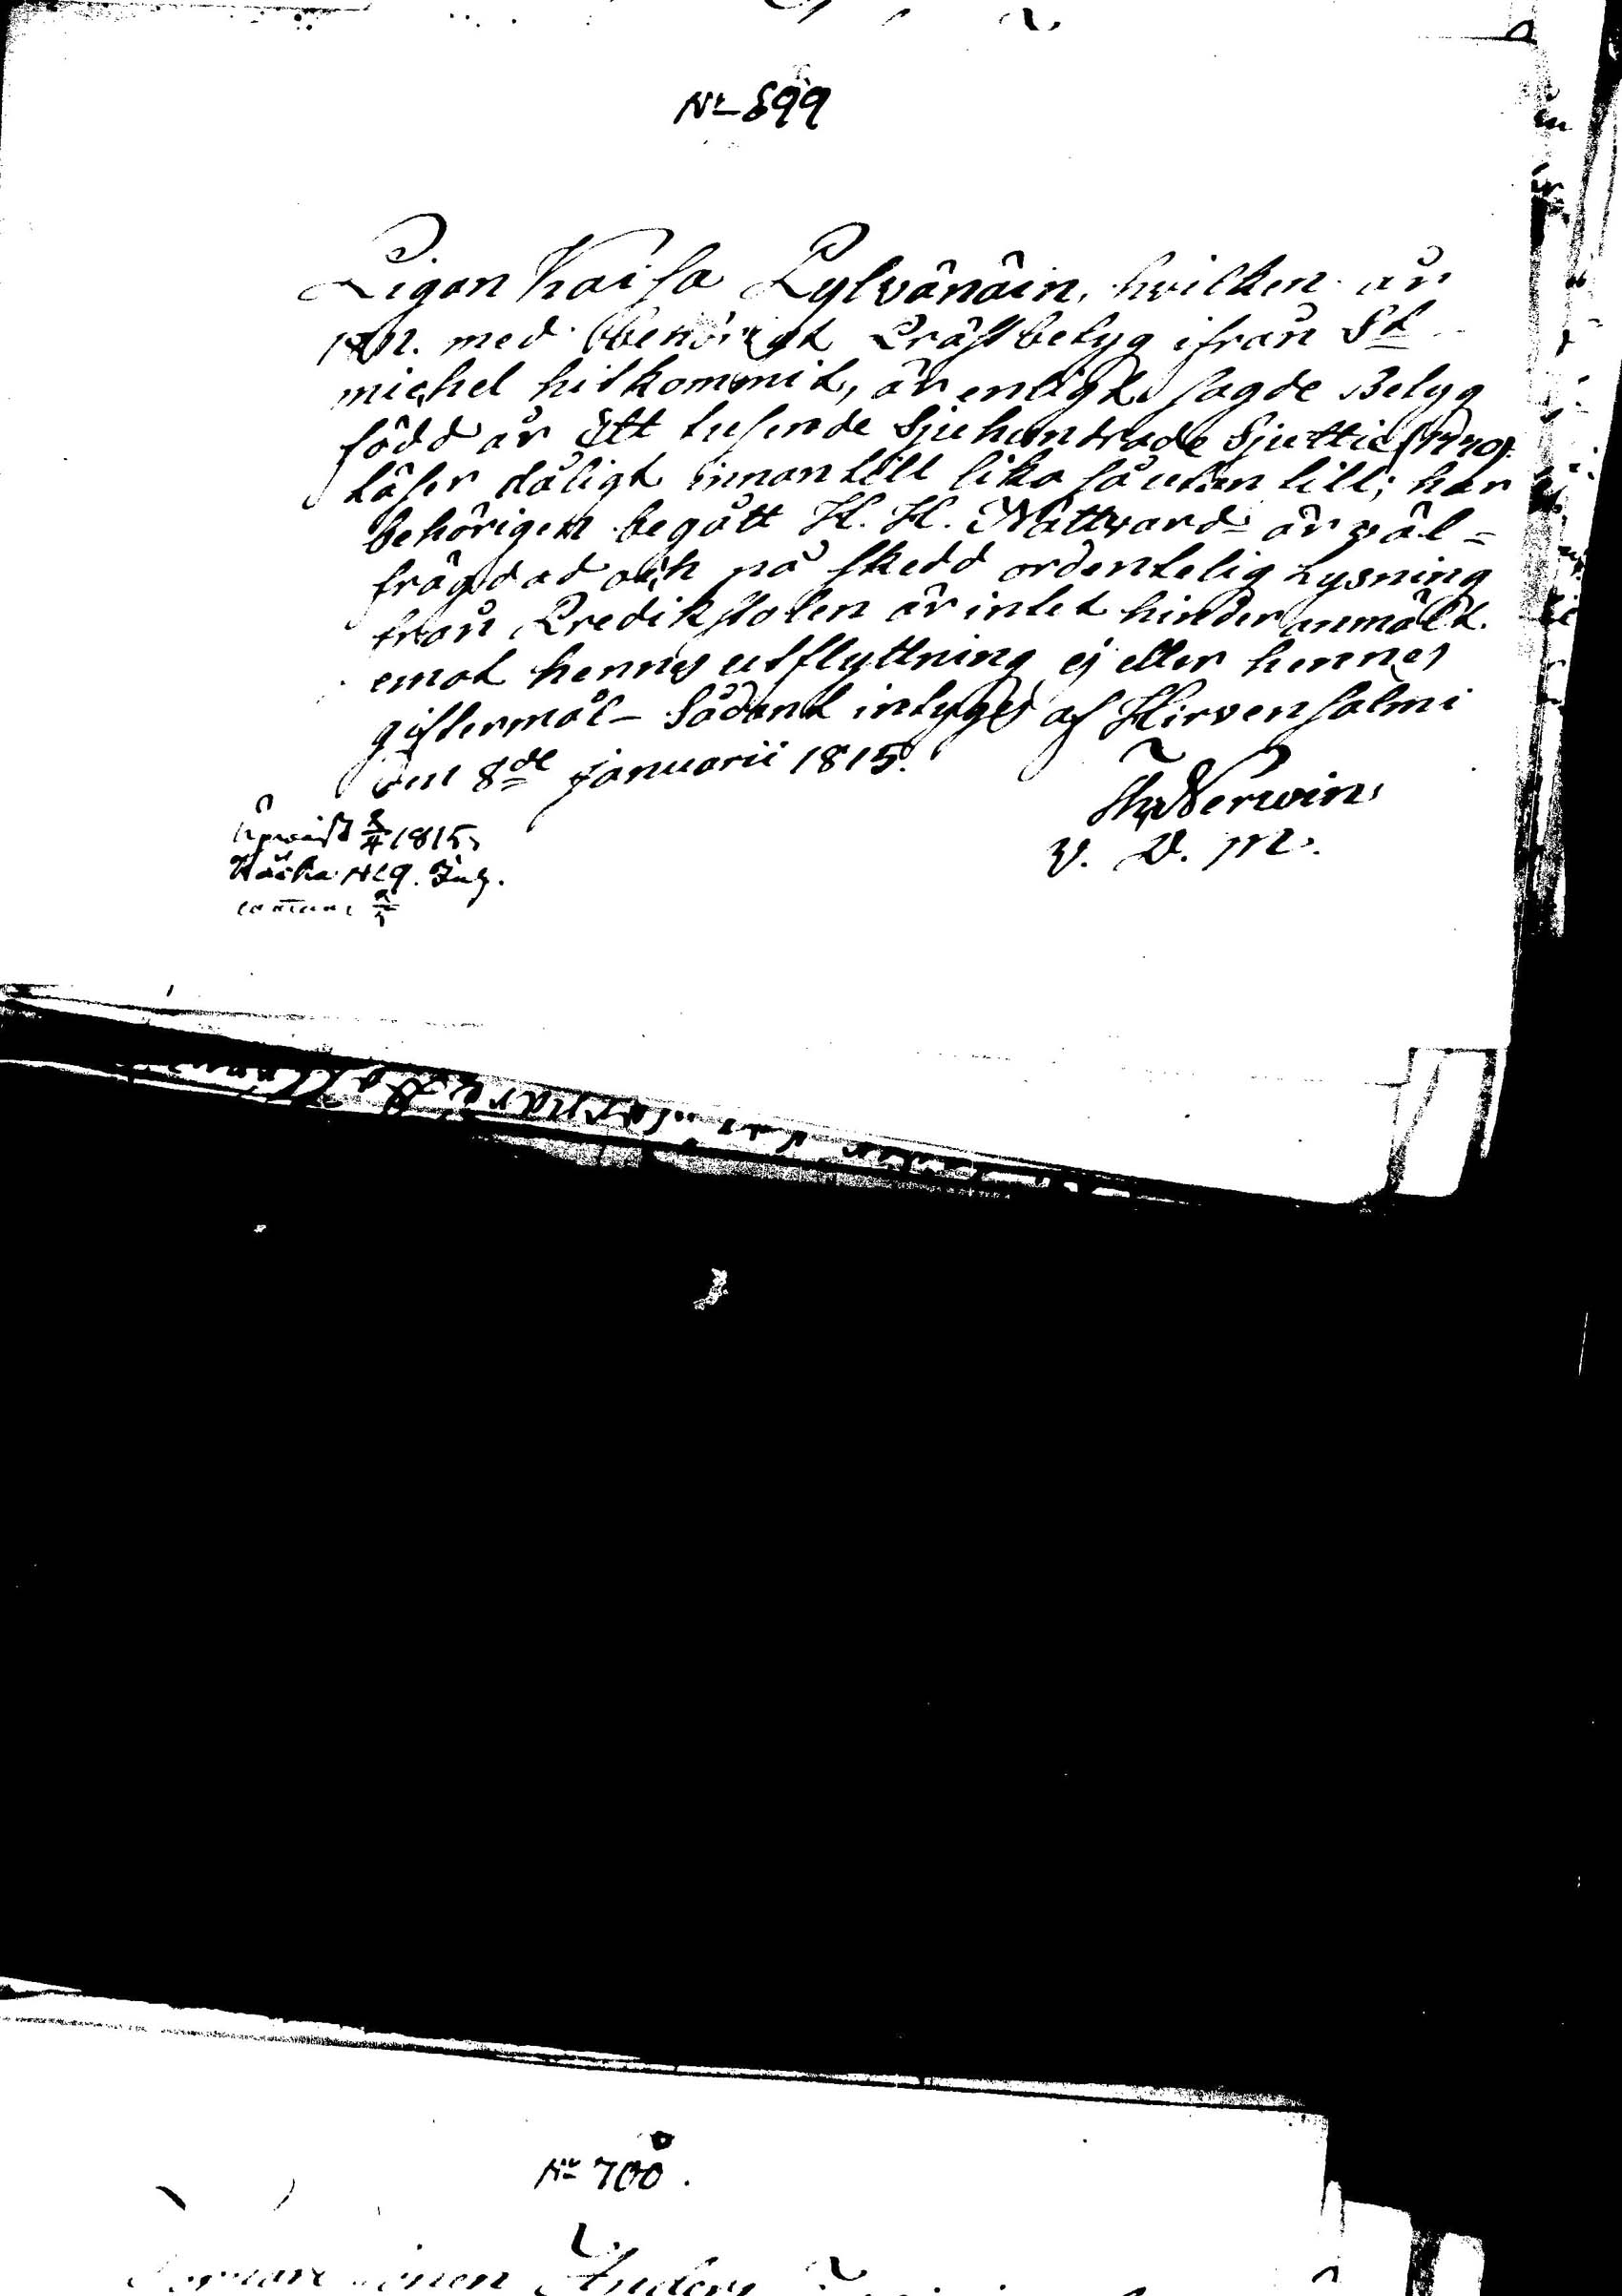 No 899
Pigan Kaisa Pylvänäin, hvilken år
med behörigt Prästbetyg ifrån St
michel hitkommit, är enligt sagde Betyg
född år Ett tusende Sjuhundrade Sjuttie (1770).
Läser dåligt innantill lika så utan till; har
behörigen begått H. H. Nattvard är väl=
frägdad och på skedd ordentelig Lysning
från Predikstolen är intet hinder anmält
emot hennes utflyttning ej eller hennes
giftermål - Sådant intygas af Hirvensalmi
den 8de januarii 1815.
V. D. M.
Upvist 1815
No 9.
No 700.
Anders